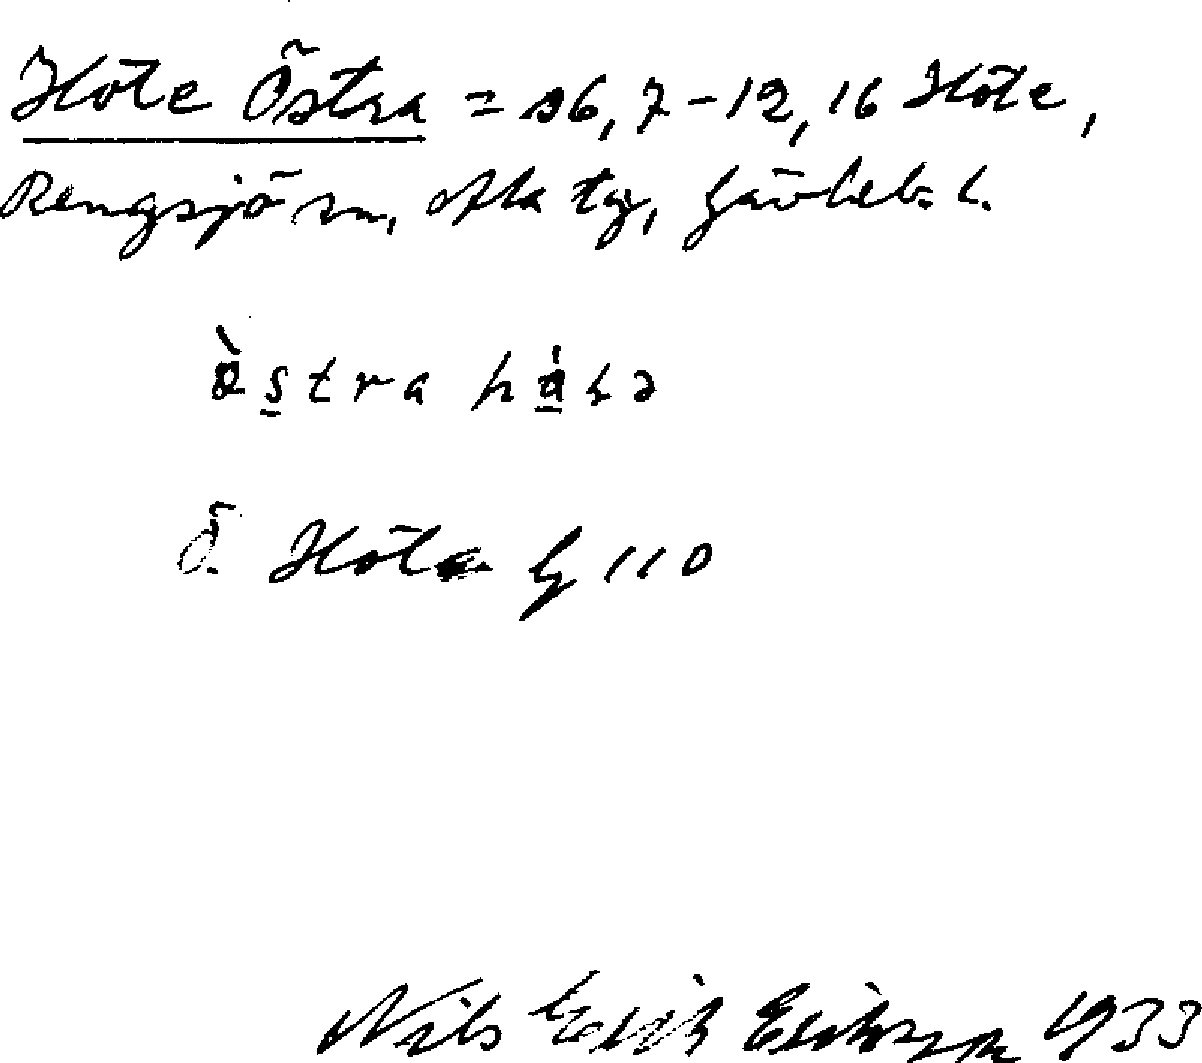 Höle Östra = s 6, 7-12, 16 Höle,
Rengsjö sn, Ala tg, Gävleb. l.
östra
Ö. Höle G 110
Nils Erik Eriksson 1933